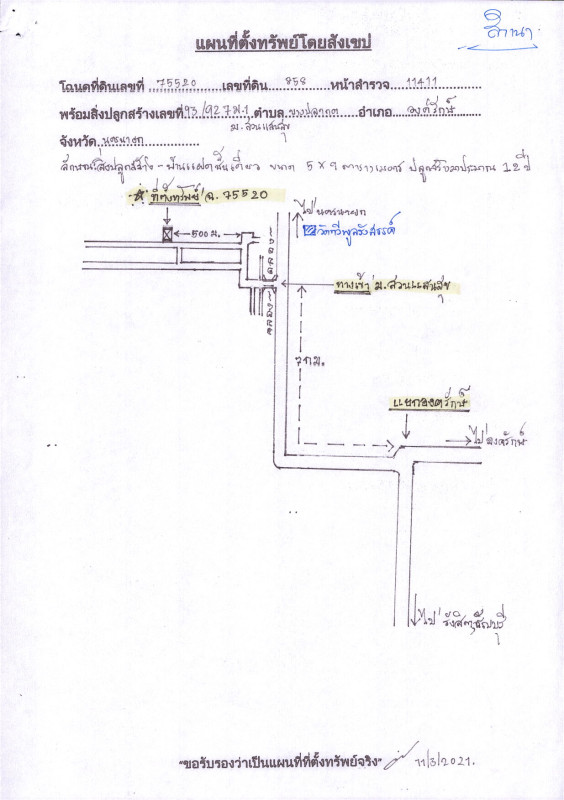 สำเนา
แผนที่ตั้งทรัพย์โดยสังเขป
โฉนดที่ดินเลขที่ 75520 เลขที่ดิน 858 หน้าสำรวจ 11411
พร้อมสิ่งปลูกสร้างเลขที่ 93/927 ม.1 ตำบล บางปลากด อำเภอ องครักษ์
ม.สวนแสนสุข
จังหวัด นครนายก
ลักษณะสิ่งปลูกสร้าง - บ้านแฝดชั้นเดียว ขนาด 5 x 9 ตารางเมตร ปลูกสร้างมาประมาณ 12 ปี
ที่ตั้งทรัพย์ ฉ. 75520
ไปนครนายก
วัดทวีพูลรังสรรค์
500 ม.
ทางเข้า ม.สวนแสนสุข
7 กม.
แยกองครักษ์
ไปองครักษ์
ไป รังสิต, ธัญบุรี
"ขอรับรองว่าเป็นแผนที่ที่ตั้งทรัพย์จริง" 11/3/2021.